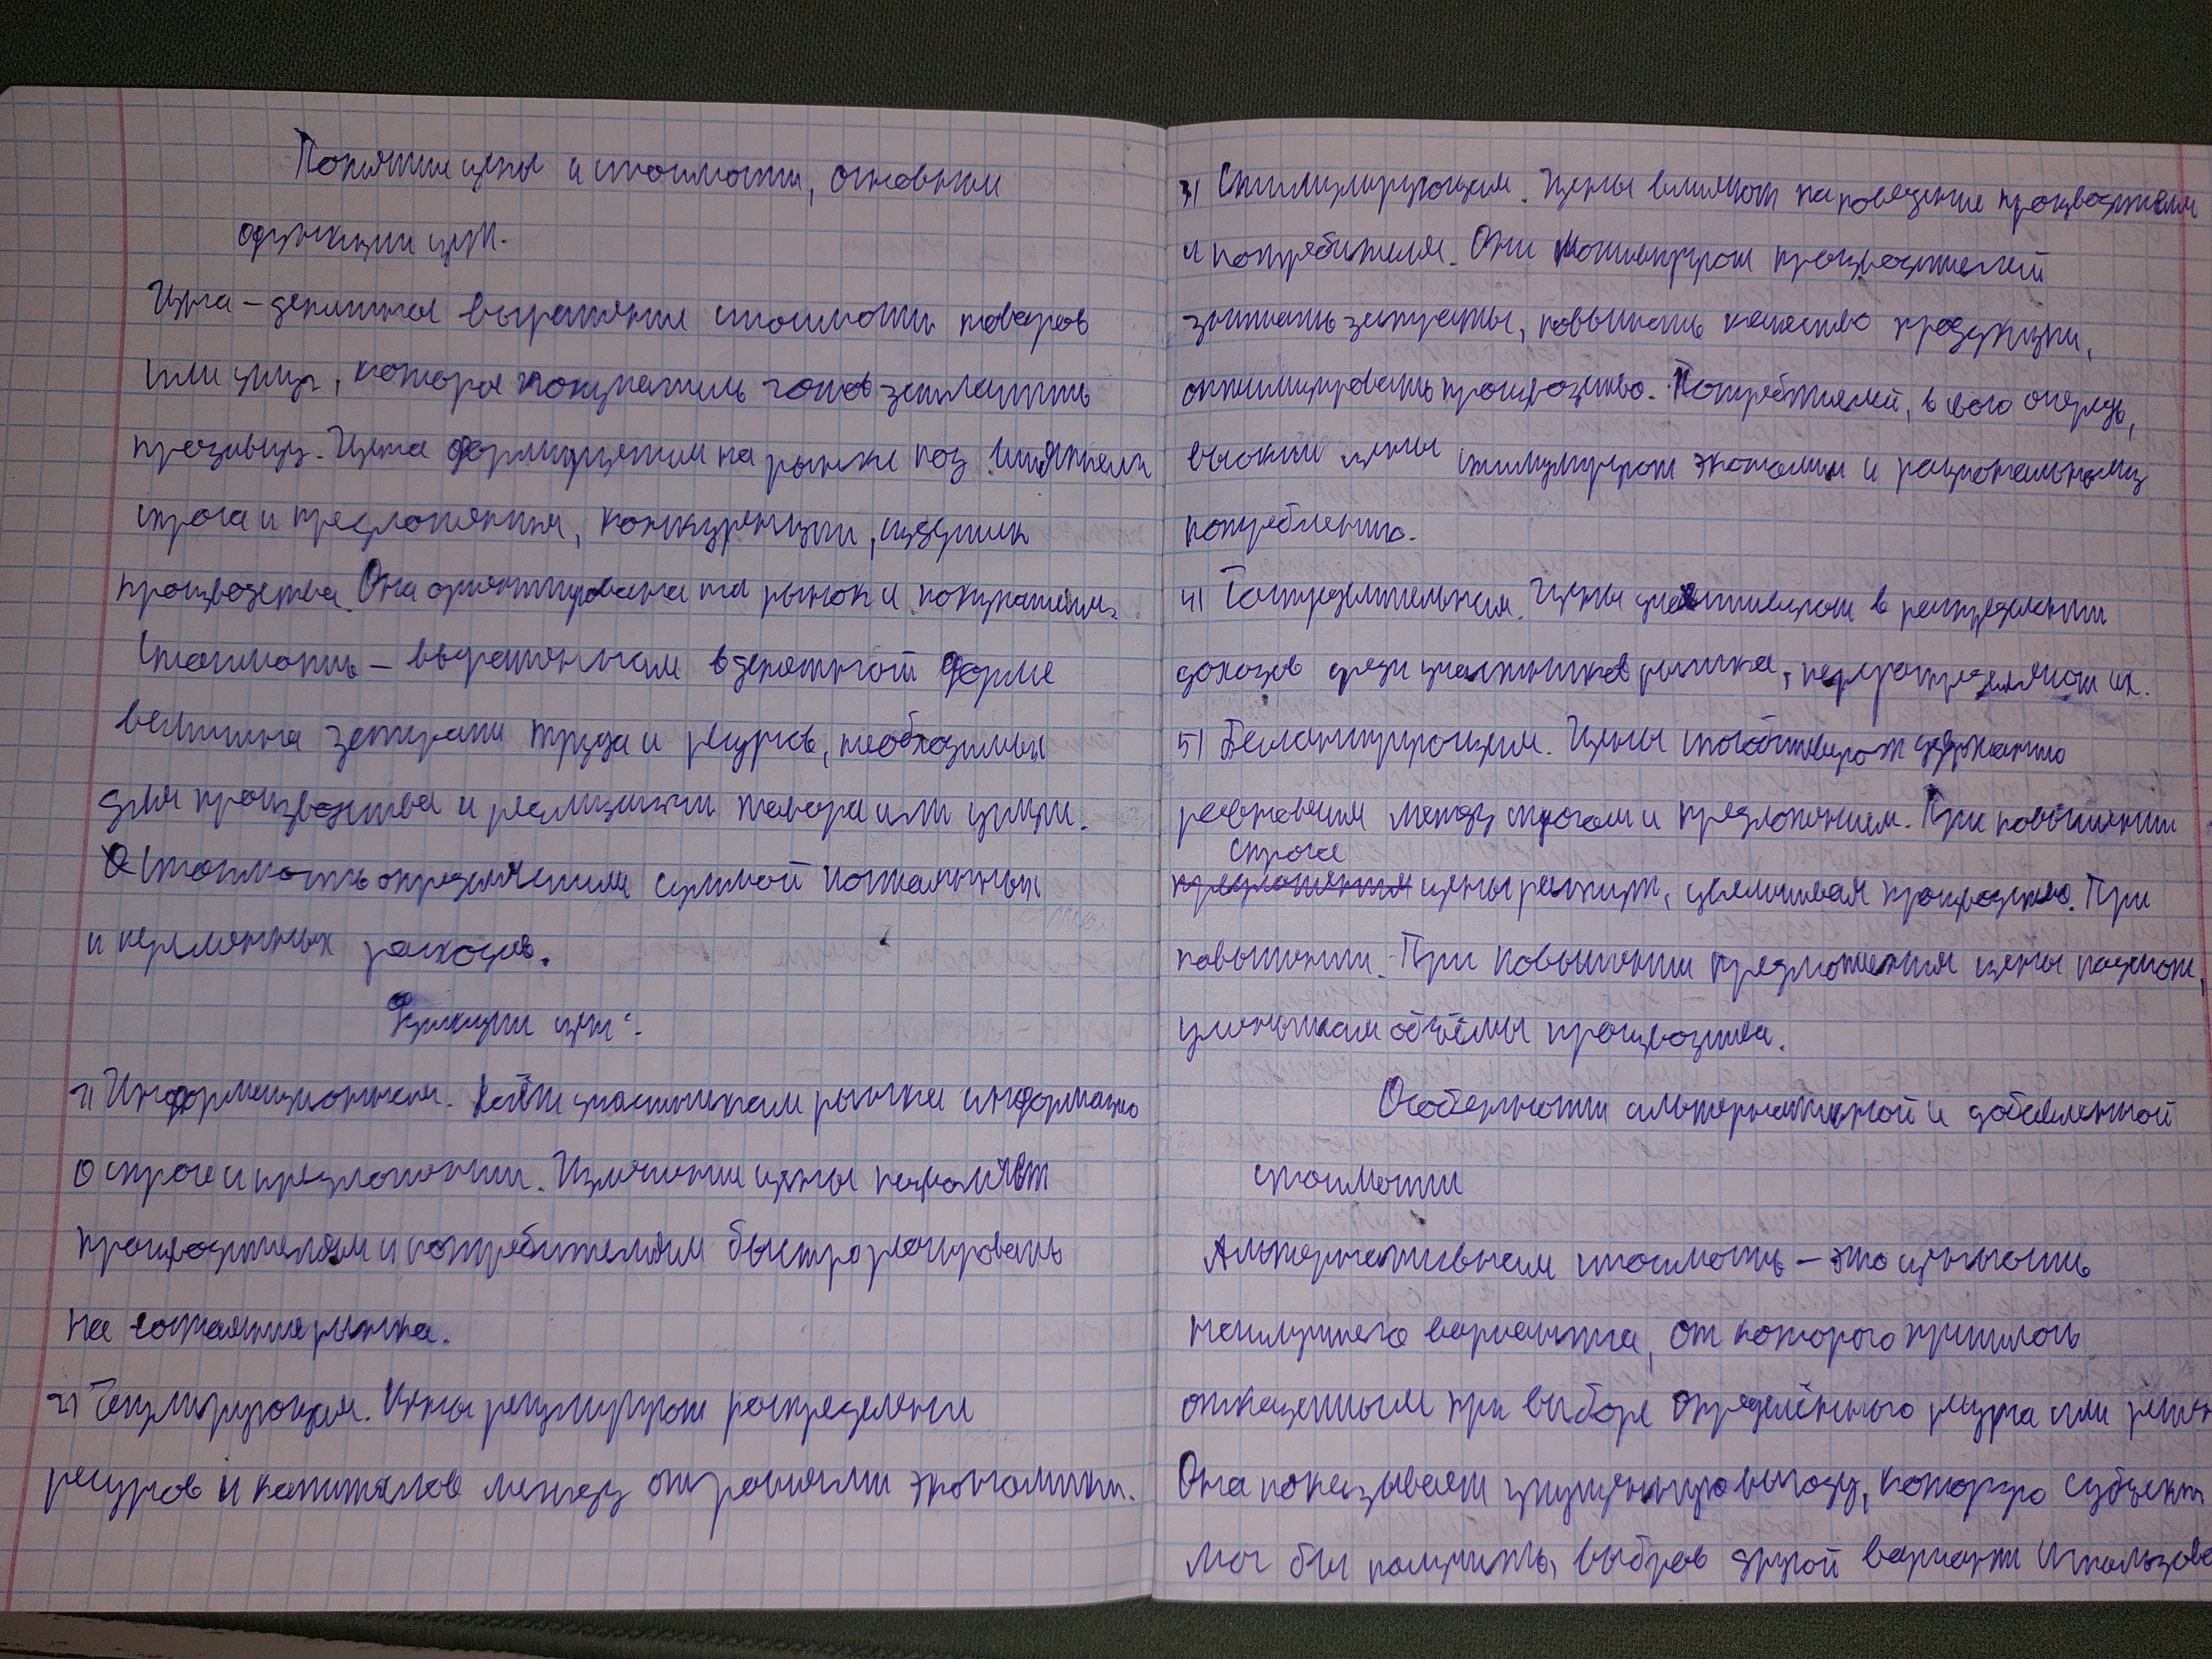 Понятие цены и стоимости, основные
функции цен.
Цена – денежное выражение стоимости товаров
или услуг, которое покупатель готов заплатить
продавцу. Цена формируется на рынке под влиянием
спроса и предложения, конкуренции, издержек
производства. Она ориентирована на рынок и покупателя.
Стоимость – выраженная в денежной форме
величина затрат труда и ресурсов, необходимых
для производства и реализации товара или услуги.
Стоимость определяется суммой постоянных
и переменных расходов.
Функции цен:
1) Информационная. участникам рынка информацию
о спросе и предложении. Изменение цены позволяет
производителям и потребителям быстро реагировать
на состояние рынка.
2) Регулирующая. Цены регулируют распределение
ресурсов и капиталов между отраслями экономики.
3) Стимулирующая. Цены влияют на поведение производителя
и потребителя. Они мотивируют производителей
снижать затраты, повышать качество продукции,
оптимизировать производство. Потребителей, в свою очередь,
высокие цены стимулируют экономии и рациональному
потреблению.
4) Распределительная. Цены участвуют в распределении
доходов среди участников рынка, перераспределяют их.
5) Балансирующая. Цены способствуют удержанию
равновесия между спросом и предложением. При повышении
спроса
предложения цены растут, увеличивая производство. При
повышении. При повышении предложения цены падают,
уменьшая объёмы производства.
Особенности альтернативной и добавленной
стоимости
Альтернативная стоимость – это ценность
наилучшего варианта, от которого пришлось
отказаться при выборе определённого ресурса или решен
Она показывает упущенную выгоду, которую субъект
мог бы получить, выбрав другой вариант использова